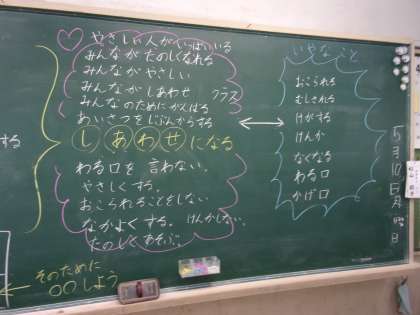 やさしい人がいっぱいいる
みんながたのしくなれる
みんながやさしい
みんながしあわせ クラス
みんなのためにがんばる
あいさつをじぶんからする
しあわせになる
わる口を言わない。
やさしくする。
おこられることをしない
なかよくする。けんかしない。
たのしくあそぶ。
いやなこと
おこられる
むしされる
けがする
けんか
なくなる
わる口
かげ口
5月10日
する
そのために
〇〇しよう